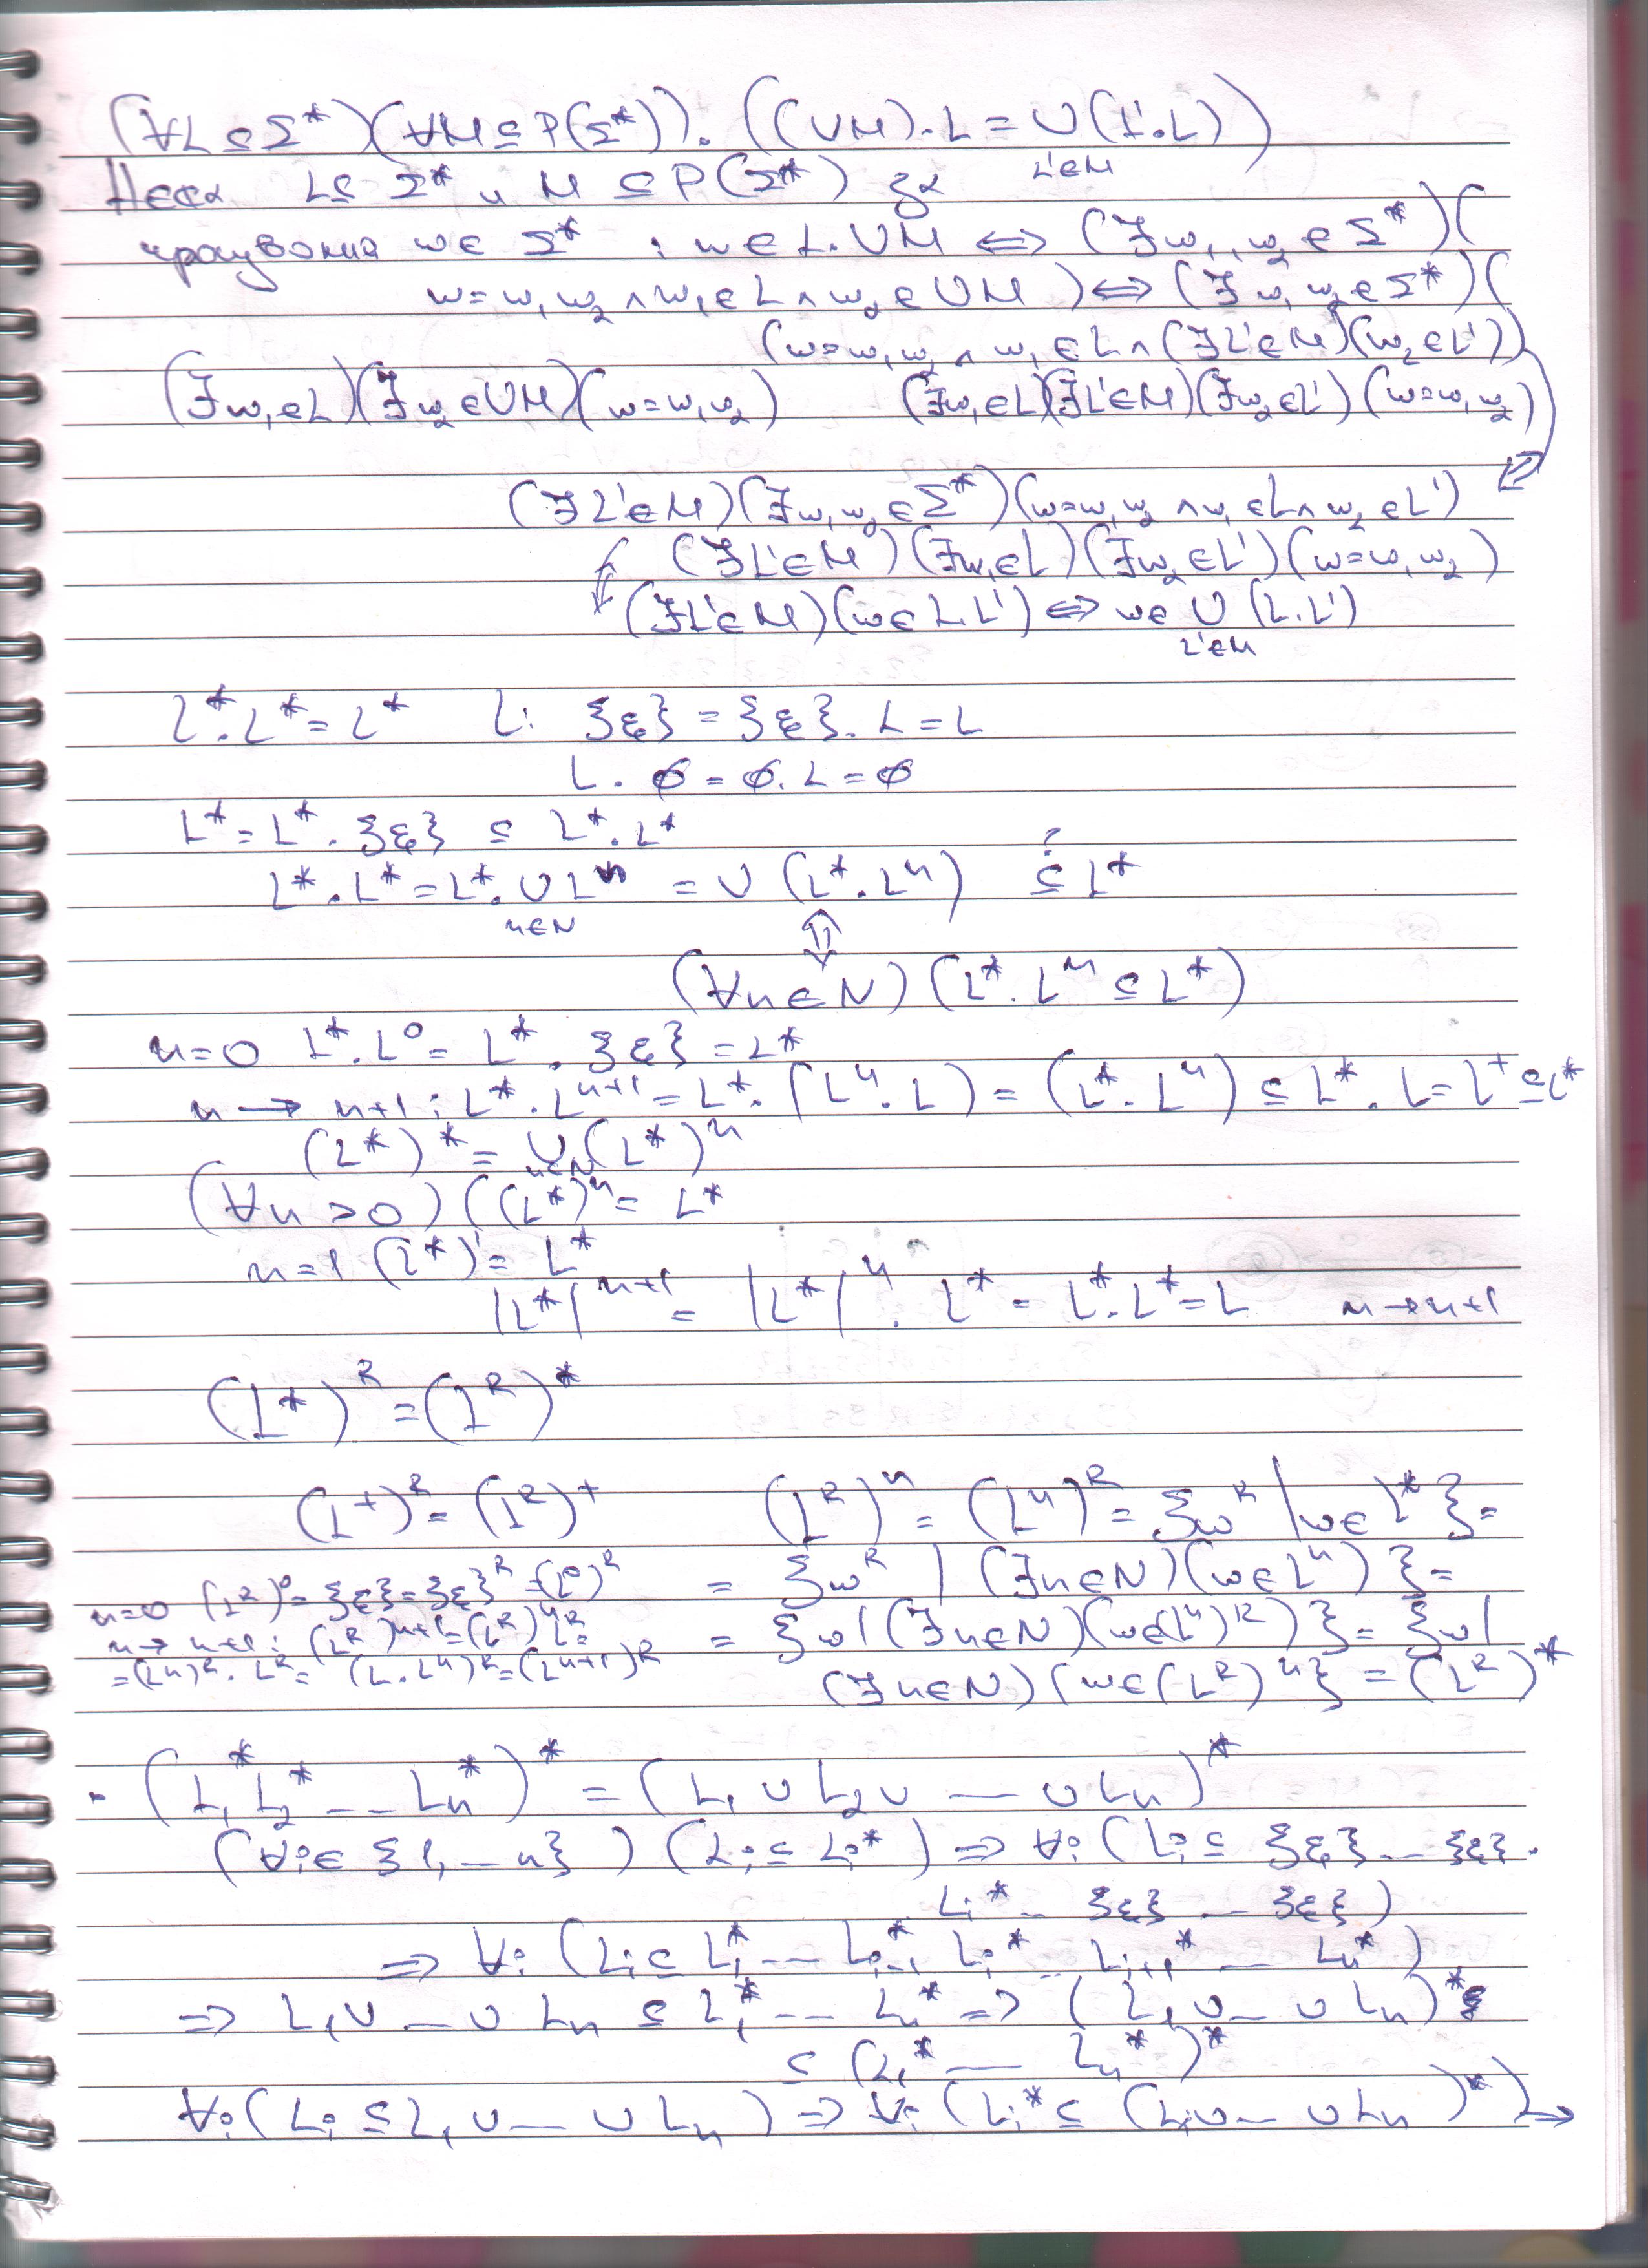 (∀L⊆Σ*)(∀M⊆P(Σ*)). ((∪M).L = ∪(L'.L))
L'∈M
Нека L⊆Σ* и M⊆P(Σ*) за
произволна w∈Σ* : w∈L.∪M ⇔ (∃w₁,w₂∈Σ*)(
w=w₁w₂∧w₁∈L∧w₂∈∪M)⇔(∃w₁w₂∈Σ*)(
(w=w₁w₂∧w₁∈L∧(∃L'∈M)(w₂∈L'))
(∃w₁∈L)(∃w₂∈∪M)(w=w₁w₂) (∃w₁∈L)(∃L'∈M)(∃w₂∈L')(w=w₁w₂)
(∃L'∈M)(∃w₁w₂∈Σ*)(w=w₁w₂∧w₁∈L∧w₂∈L')
(∃L'∈M)(∃w₁∈L)(∃w₂∈L')(w=w₁w₂)
(∃L'∈M)(w∈L.L')⇔w∈∪(L.L')
L'∈M
L*.L*=L* L: {ε}={ε}.L=L
L.∅=∅.L=∅
L*=L*.{ε}⊆L*.L*
?
L*.L*=L*.∪Lⁿ = ∪(L*.Lⁿ) ⊆L*
n∈N
⇕
(∀n∈N)(L*.Lⁿ⊆L*)
n=0 L*.L⁰=L*.{ε}=L*
n→n+1: L*.Lⁿ⁺¹=L*.(Lⁿ.L)=(L*.Lⁿ)⊆L*.L=L⁺⊆L*
(L*)*=∪(L*)ⁿ
n∈N
(∀n>0)((L*)ⁿ=L*
n=1 (L*)¹=L*
(L*)ⁿ⁺¹=(L*)ⁿ.L*=L*.L*=L n→n+1
(L*)ᴿ=(Lᴿ)*
(L⁺)ᴿ=(Lᴿ)⁺ (Lᴿ)ⁿ=(Lⁿ)ᴿ={wᴿ|w∈L*}=
n=0 (Lᴿ)⁰={ε}={ε}ᴿ=(L⁰)ᴿ = {wᴿ|(∃n∈N)(w∈Lⁿ)}=
n→n+1: (Lᴿ)ⁿ⁺¹=(Lᴿ)ⁿLᴿ= = {w|(∃n∈N)(w∈(Lⁿ)ᴿ)}={w|
=(Lⁿ)ᴿ.Lᴿ=(L.Lⁿ)ᴿ=(Lⁿ⁺¹)ᴿ (∃n∈N)(w∈(Lᴿ)ⁿ}=(Lᴿ)*
· (L₁*L₂*--Lₙ*)*=(L₁∪L₂∪—∪Lₙ)*
(∀i∈{1,–n})(Lᵢ⊆Lᵢ*)⇒∀i(Lᵢ⊆{ε}..{ε}.
Lᵢ*–{ε}–{ε})
⇒∀i(Lᵢ⊆L₁*--Lᵢ₋₁*Lᵢ*–Lᵢ₊₁*–Lₙ*)
⇒L₁∪–∪Lₙ⊆L₁*--Lₙ*⇒(L₁∪–∪Lₙ)*
⊆(L₁*—Lₙ*)*
∀i(Lᵢ⊆L₁∪–∪Lₙ)⇒∀i(Lᵢ*⊆(L₁∪–∪Lₙ)*)→